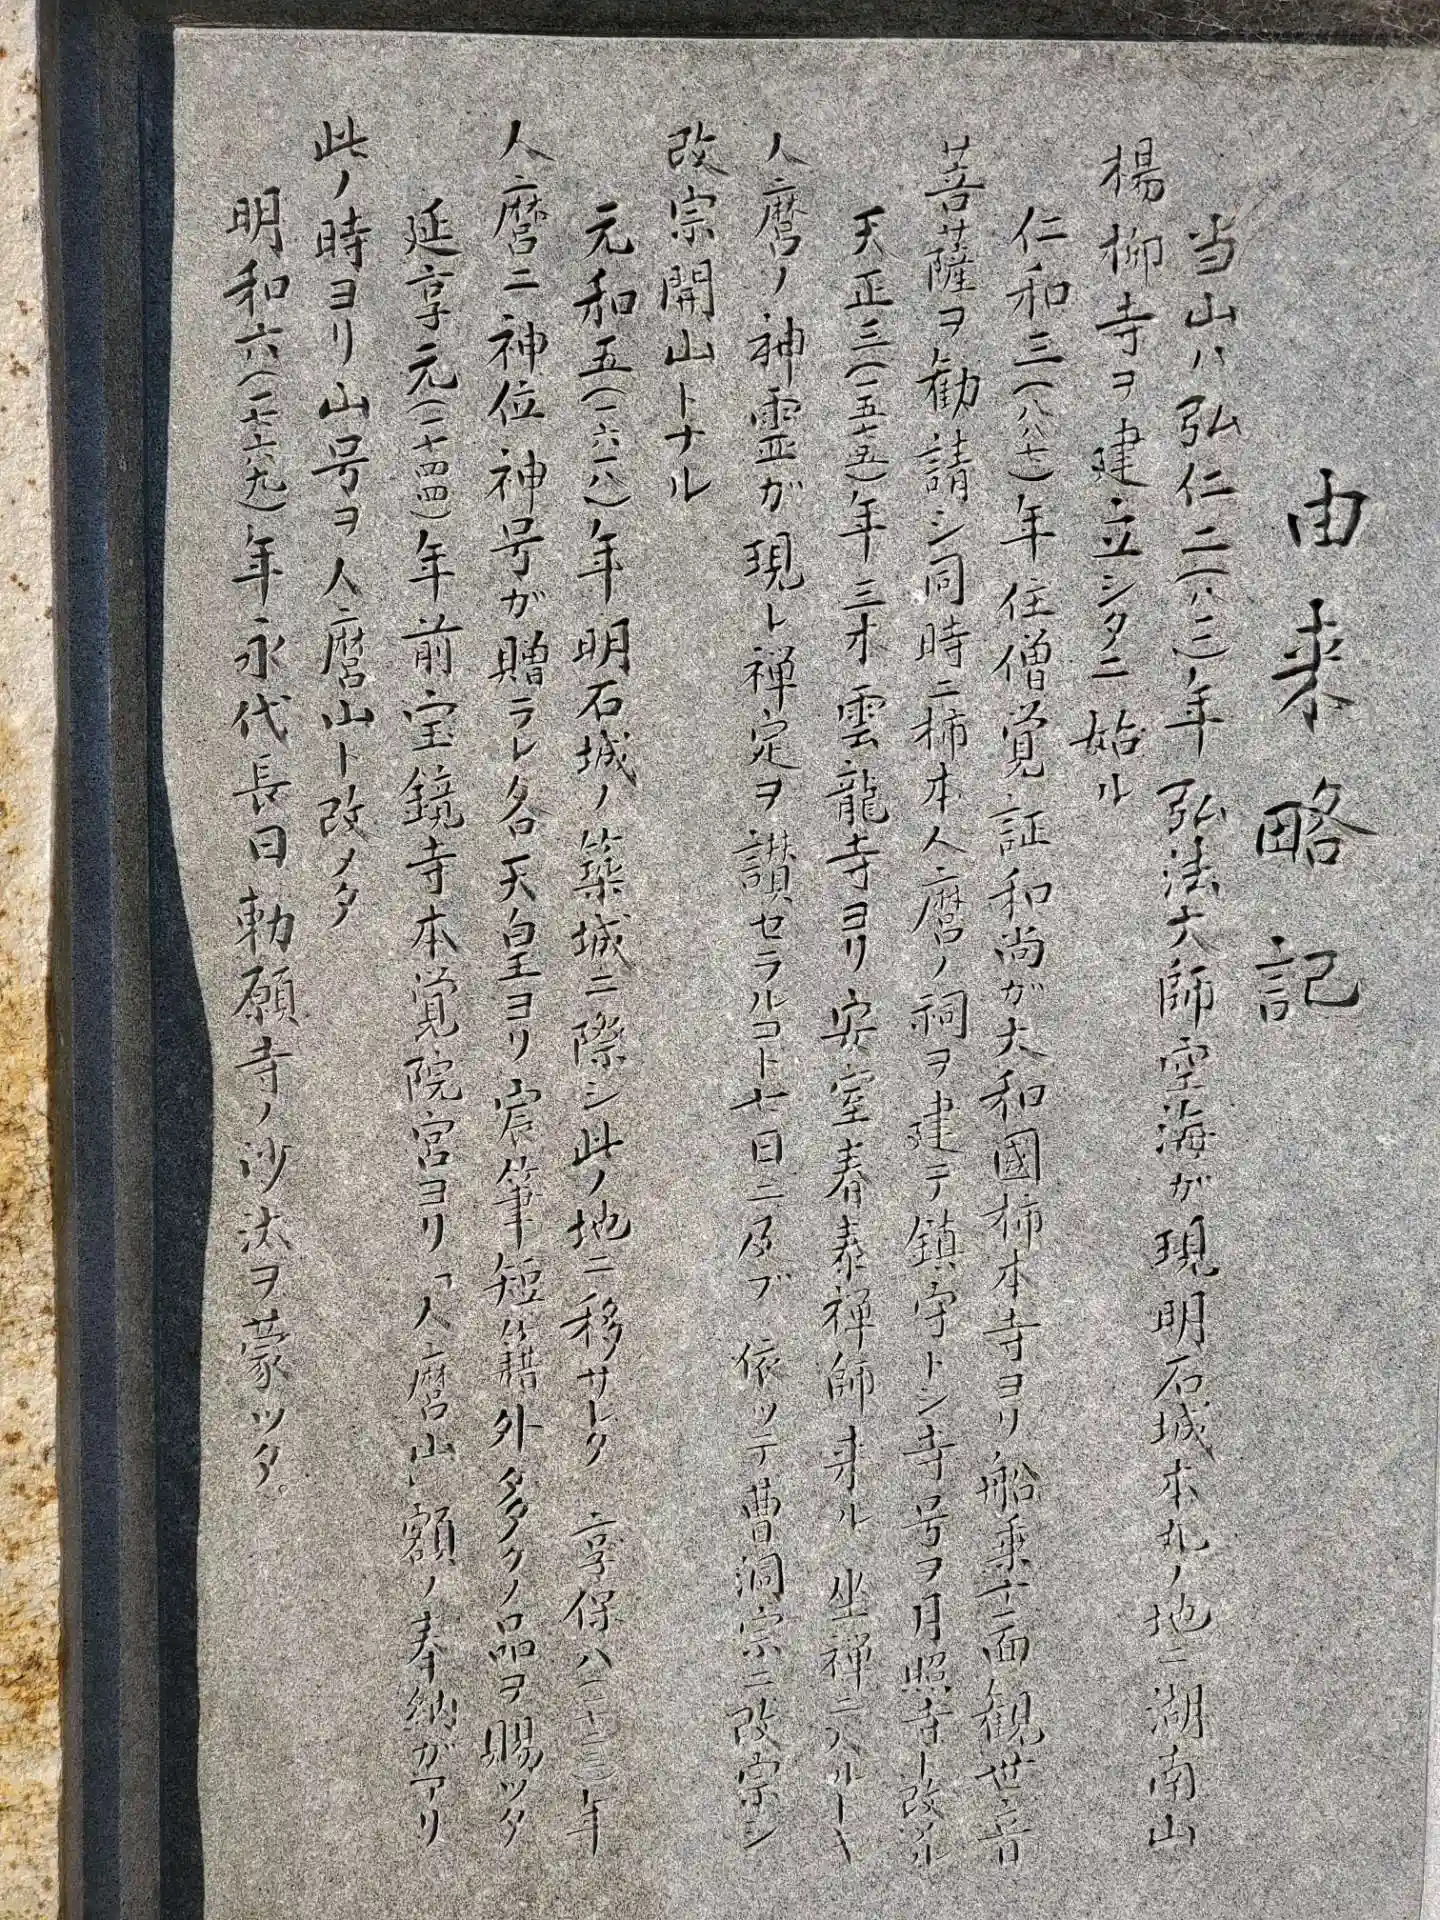 由来略記
当山ハ弘仁二(八一二)年 弘法大師空海ガ現明石城本丸ノ地ニ湖南山
楊柳寺ヲ建立シタニ始ル
仁和三(八八七)年住僧覚証和尚ガ大和國柿本寺ヨリ船乗十一面観世音
菩薩ヲ勧請シ同時ニ柿本人麿ノ祠ヲ建テ鎮守トシ寺号ヲ月照寺ト改ル
天正三(一五七五)年三木雲龍寺ヨリ安室春泰禅師来ル 坐禅ニ入ルトキ
人麿ノ神霊ガ現レ禅定ヲ讃セラルコト七日ニ及ブ 依ッテ曹洞宗ニ改宗シ
改宗開山トナル
元和五(一六一八)年明石城ノ築城ニ際シ此ノ地ニ移サレタ 享保八(一七二三)年
人麿ニ神位神号ガ贈ラレ各天皇ヨリ宸筆短籍外多クノ品ヲ賜ッタ
延享元(一七四四)年前宝鏡寺本覚院宮ヨリ「人麿山」額ノ奉納ガアリ
此ノ時ヨリ山号ヲ人麿山ト改メタ
明和六(一七六九)年永代長日勅願寺ノ沙汰ヲ蒙ッタ。